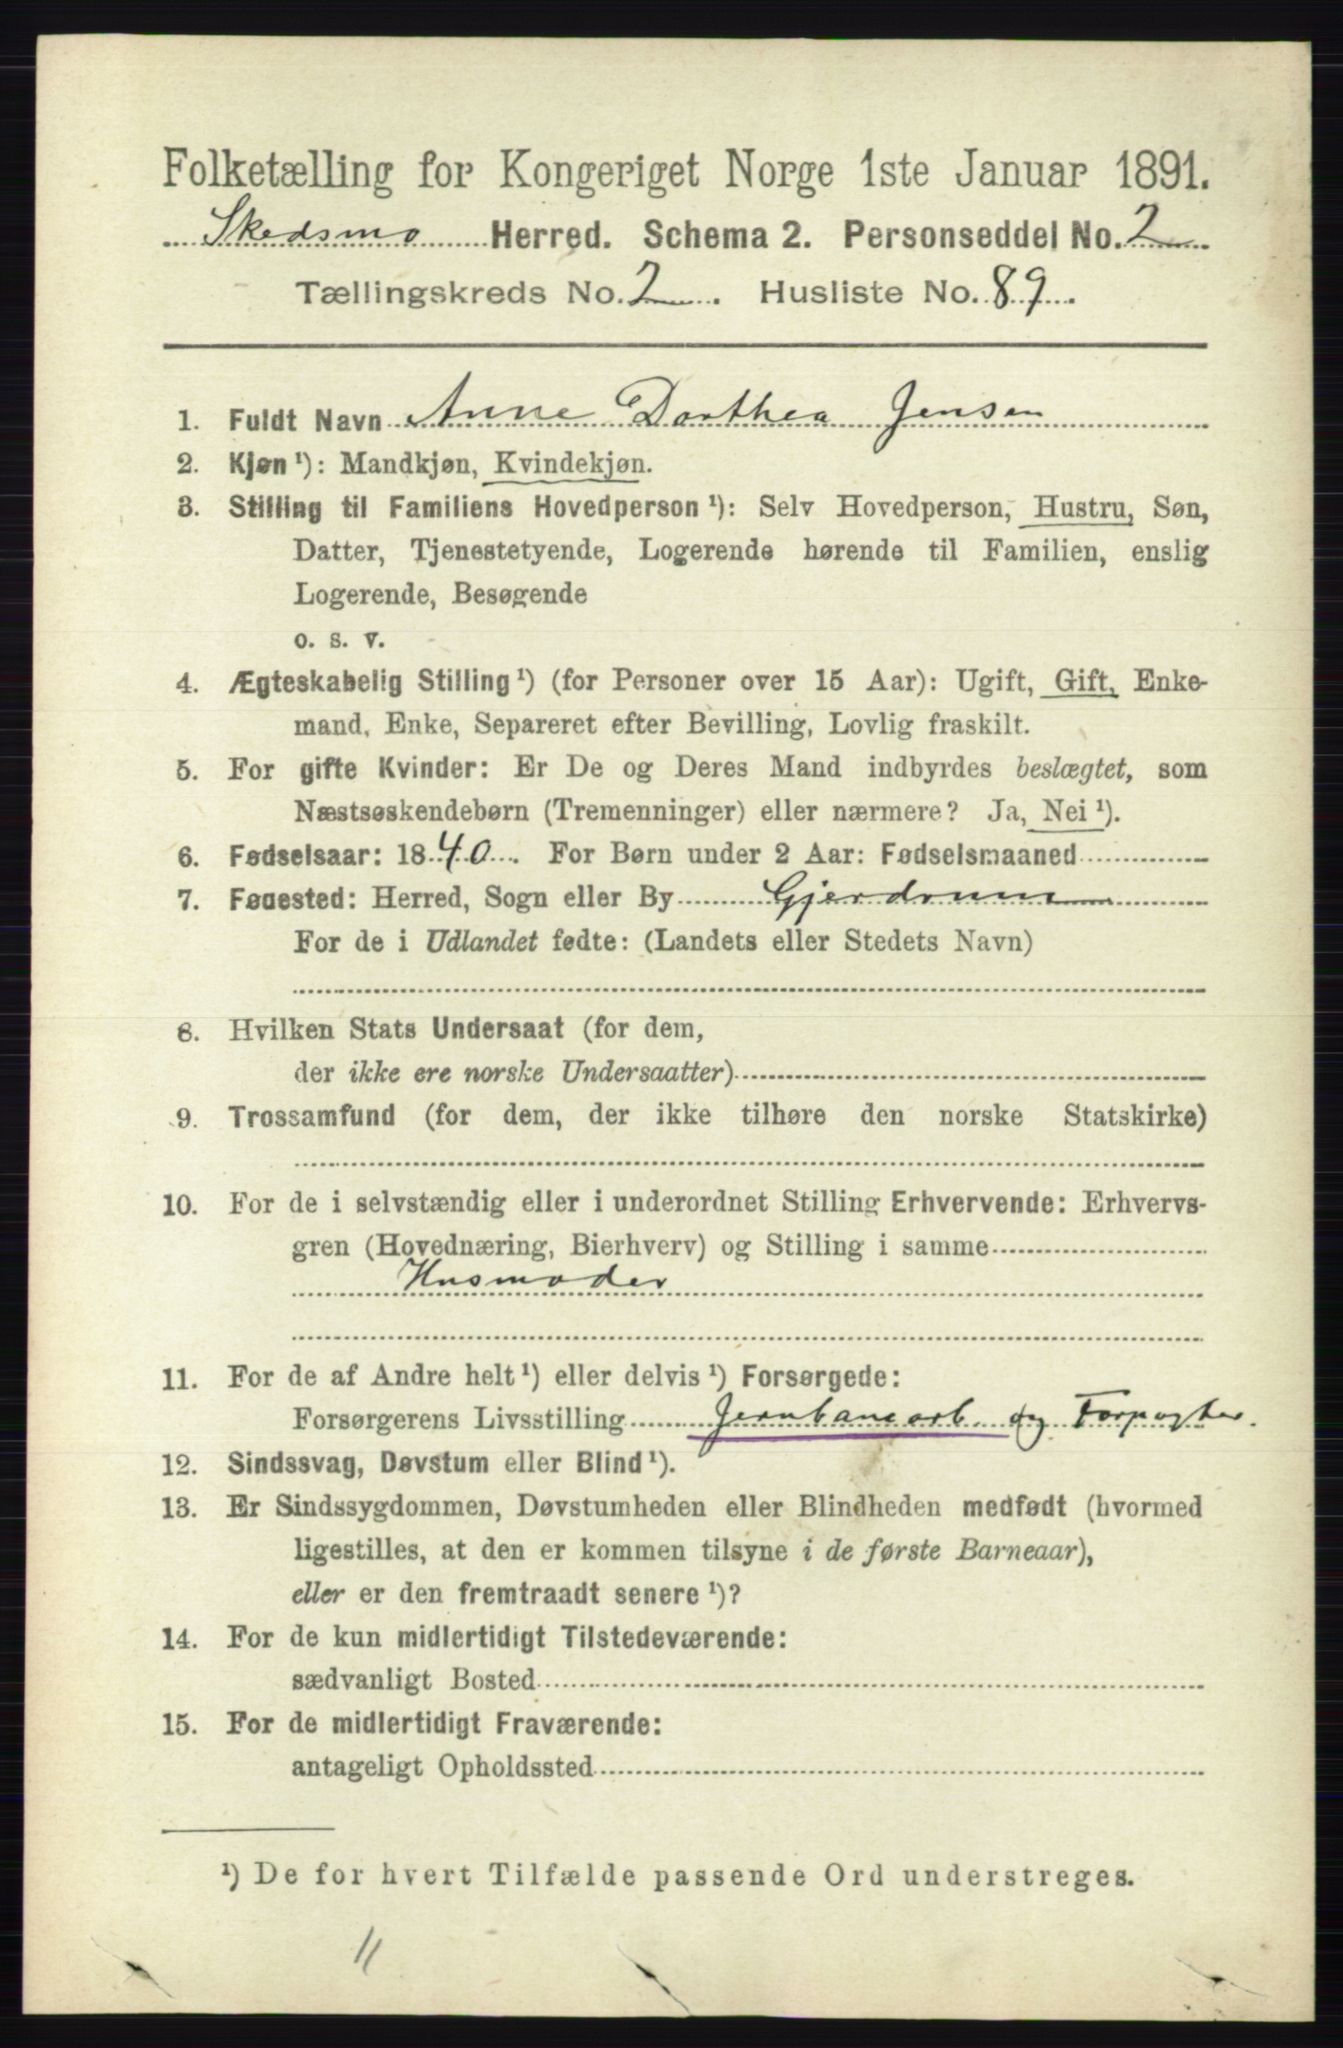 Folketælling for Kongeriget Norge 1ste Januar 1891.
Skedsmo Herred. Schema 2. Personseddel No. 2
Tællingskreds No. 2. Husliste No. 89.
1. Fuldt Navn Anne Dorthea Jensen
2. Kjøn ¹): Mandkjøn, Kvindekjøn.
3. Stilling til Familiens Hovedperson ¹): Selv Hovedperson, Hustru, Søn,
Datter, Tjenestetyende, Logerende hørende til Familien, enslig
Logerende, Besøgende
o. s. v.
4. Ægteskabelig Stilling ¹) (for Personer over 15 Aar): Ugift, Gift, Enke-
mand, Enke, Separeret efter Bevilling, Lovlig fraskilt.
5. For gifte Kvinder: Er De og Deres Mand indbyrdes beslægtet, som
Næstsøskendebørn (Tremenninger) eller nærmere? Ja, Nei ¹).
6. Fødselsaar: 1840. For Børn under 2 Aar: Fødselsmaaned
7. Føuested: Herred, Sogn eller By Gjerdrum
For de i Udlandet fødte: (Landets eller Stedets Navn)
8. Hvilken Stats Undersaat (for dem,
der ikke ere norske Undersaatter)
9. Trossamfund (for dem, der ikke tilhøre den norske Statskirke)
10. For de i selvstændig eller i underordnet Stilling Erhvervende: Erhvervs-
gren (Hovednæring, Bierhverv) og Stilling i samme
Husmoder
11. For de af Andre helt ¹) eller delvis ¹) Forsørgede:
Forsørgerens Livsstilling Jernbanearb. og Forpagter.
12. Sindssvag, Døvstum eller Blind ¹).
13. Er Sindssygdommen, Døvstumheden eller Blindheden medfødt (hvormed
ligestilles, at den er kommen tilsyne i de første Barneaar),
eller er den fremtraadt senere ¹)?
14. For de kun midlertidigt Tilstedeværende:
sædvanligt Bosted
15. For de midlertidigt Fraværende:
antageligt Opholdssted
¹) De for hvert Tilfælde passende Ord understreges.
11